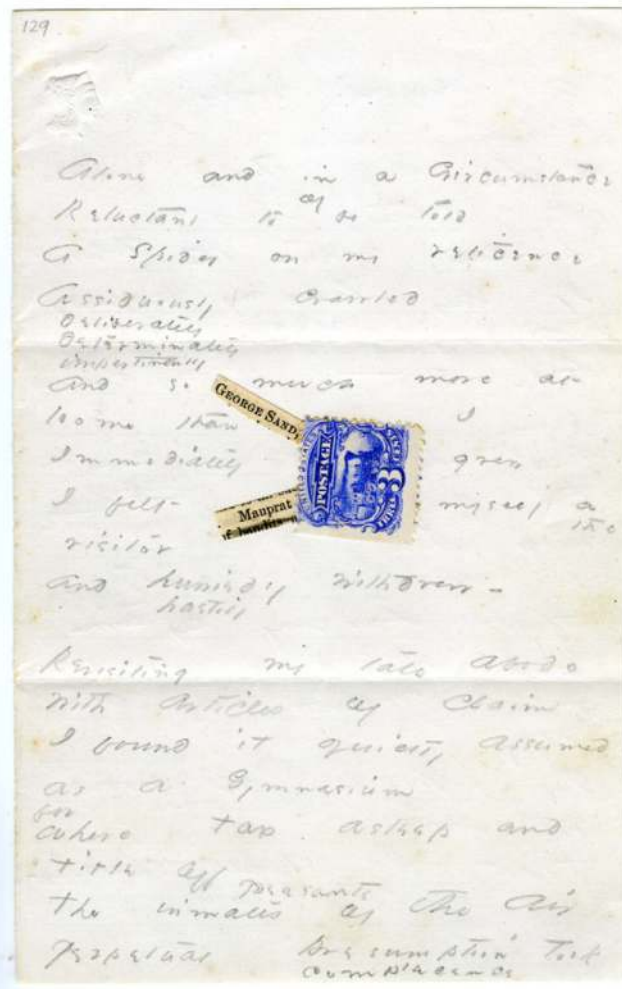 129
Alone and in a Circumstance
Reluctant to be told
of
A Spider on my reticence
Assiduously crawled
deliberately
determinately
impertinently
And so much more at
Home than I
Immediately grew
I felt myself a
the
visitor
And hurriedly withdrew -
hastily
GEORGE SAND
Mauprat
POSTAGE
UNITED STATES
3
THREE CENTS
Revisiting my late abode
with articles of claim
I found it quietly assumed
as a Gymnasium
for
where tax asleep and
title off
peasants
the inmates of the Air
perpetual presumption took
complacence